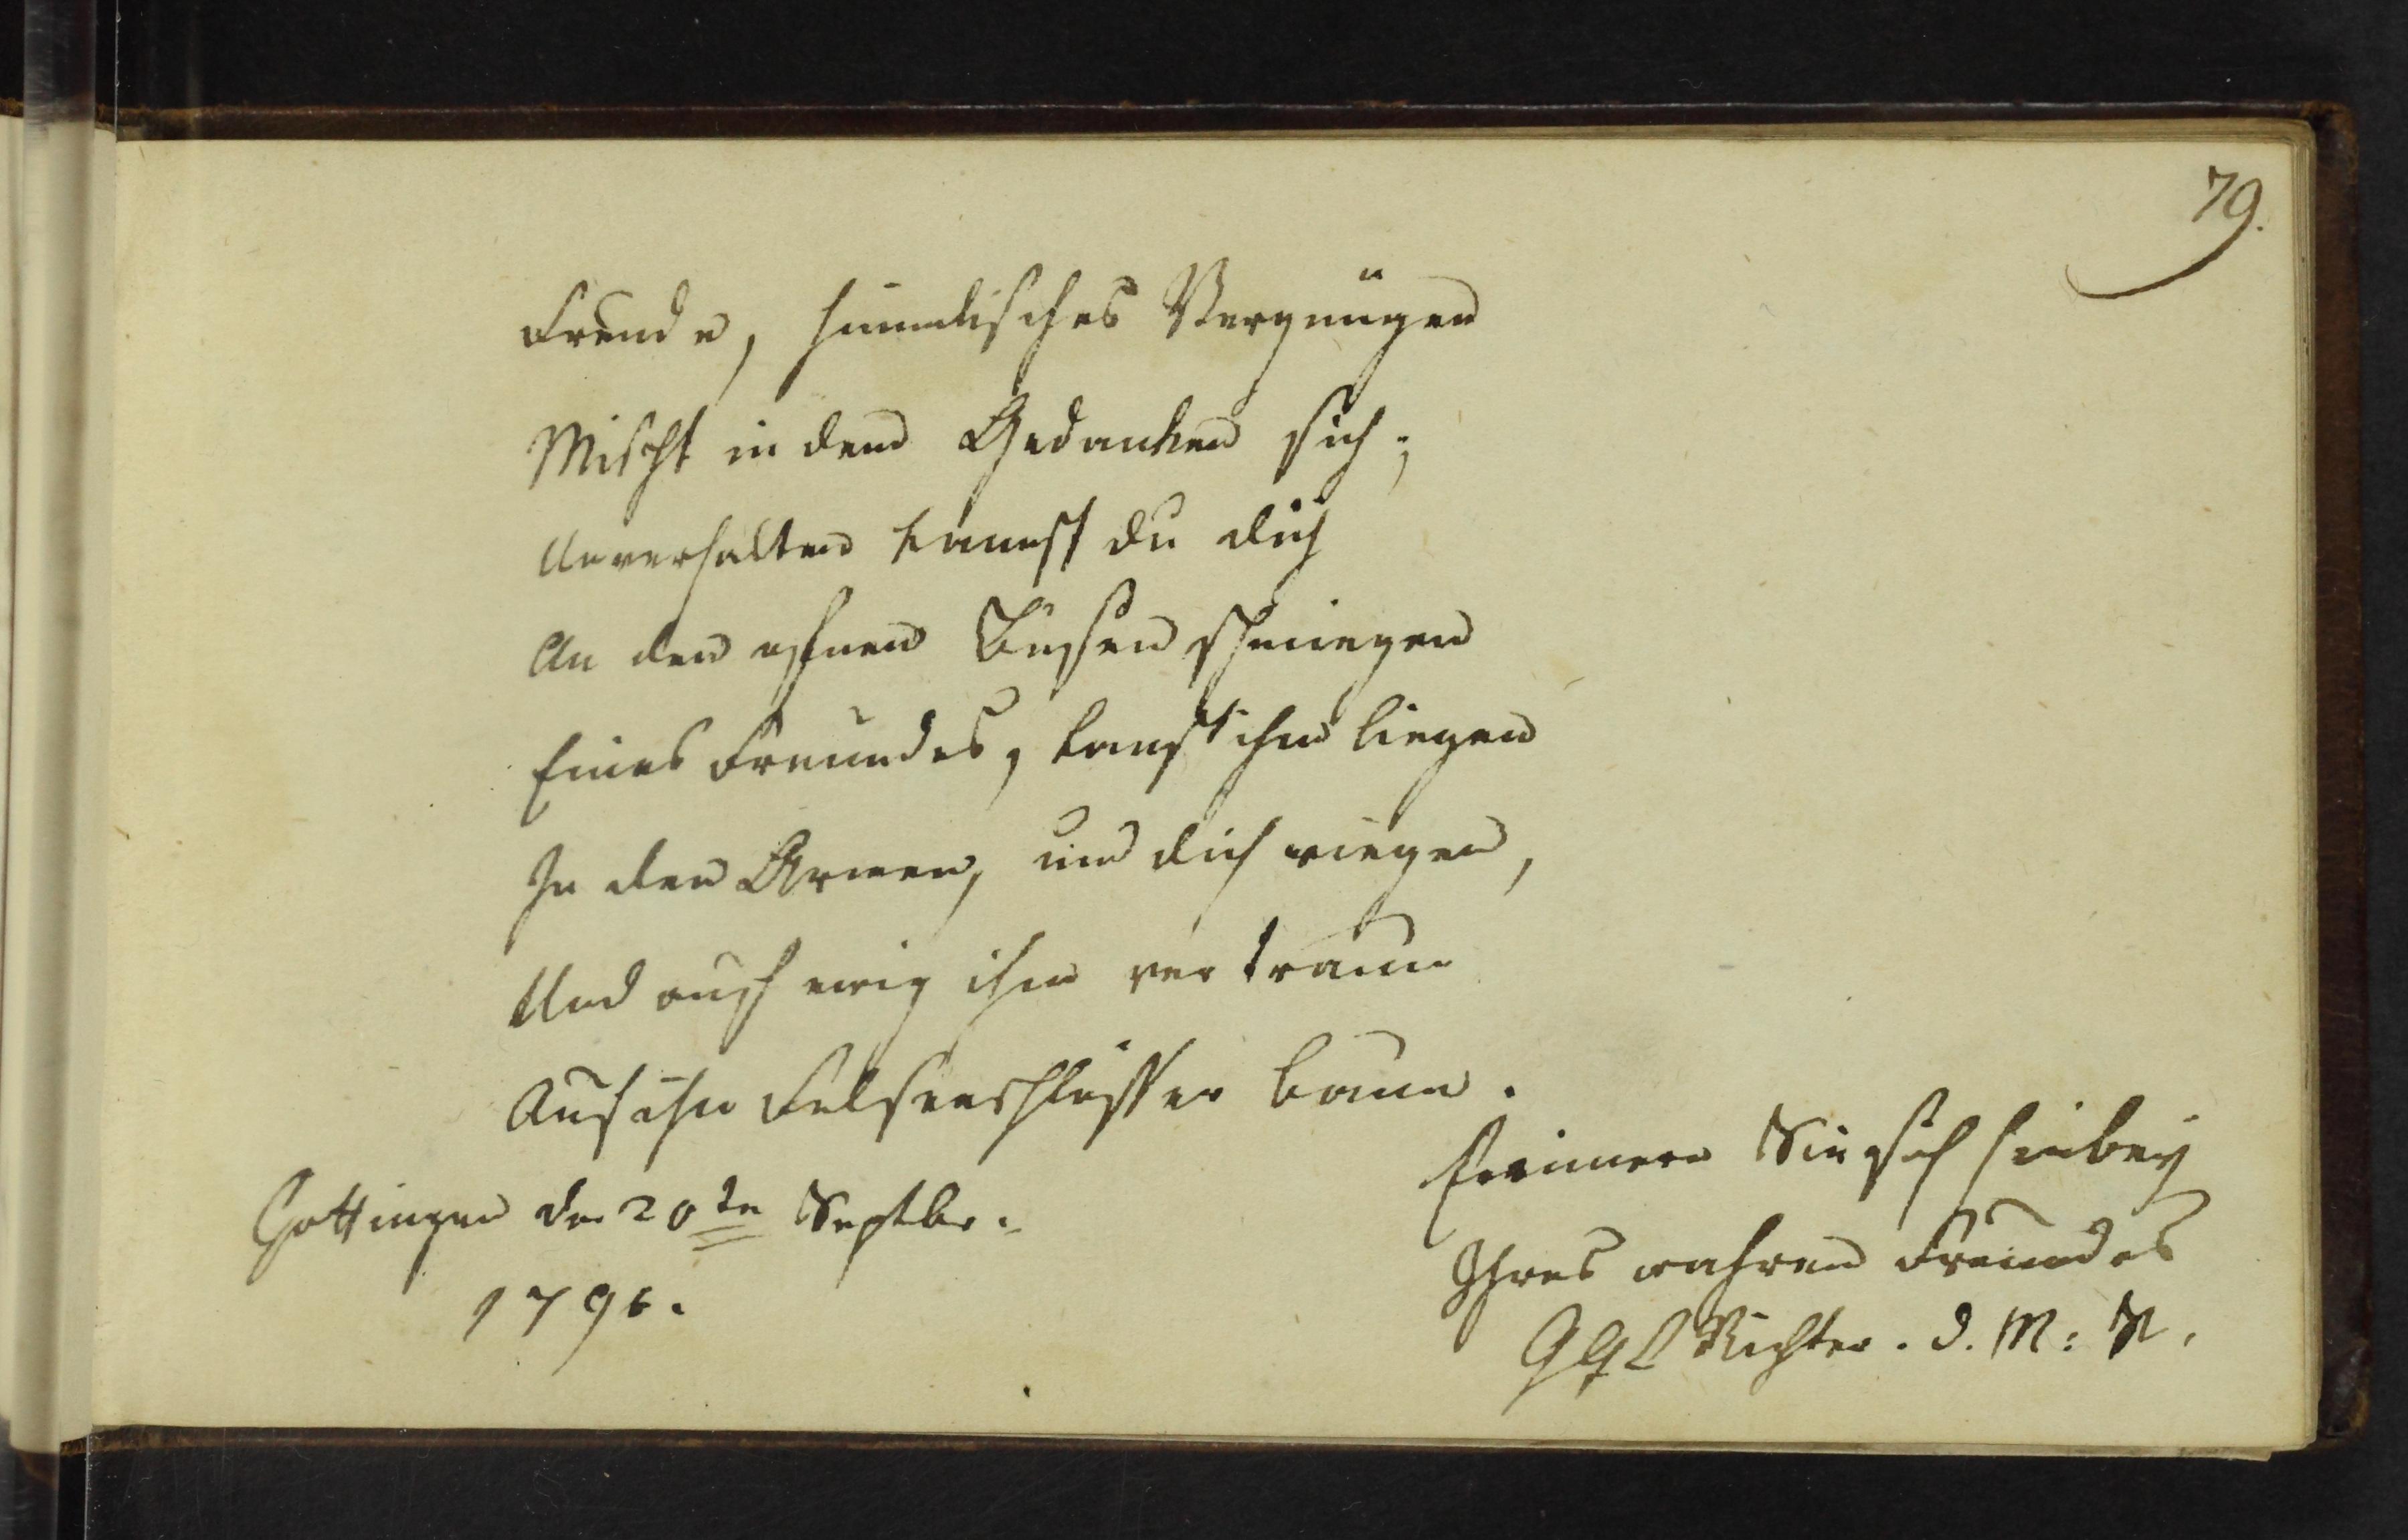 79.
Freude, himmlisches Vergnügen
Mischt in dem Gedanken sich;
Unverhalten kannst du dich
An den ofnen Busen schmiegen
Eines Freundes, kanst ihm liegen
In den Armen, und dich wiegen,
Und auch ewig ihm vertraun
Auf ihn Felsenschlösser baun.
Gottingen den 20ten Septbr.
1796.
Erinnern Sie sich hiebey
Ihres wahren Freundes
GGL Richter. d. M: K.